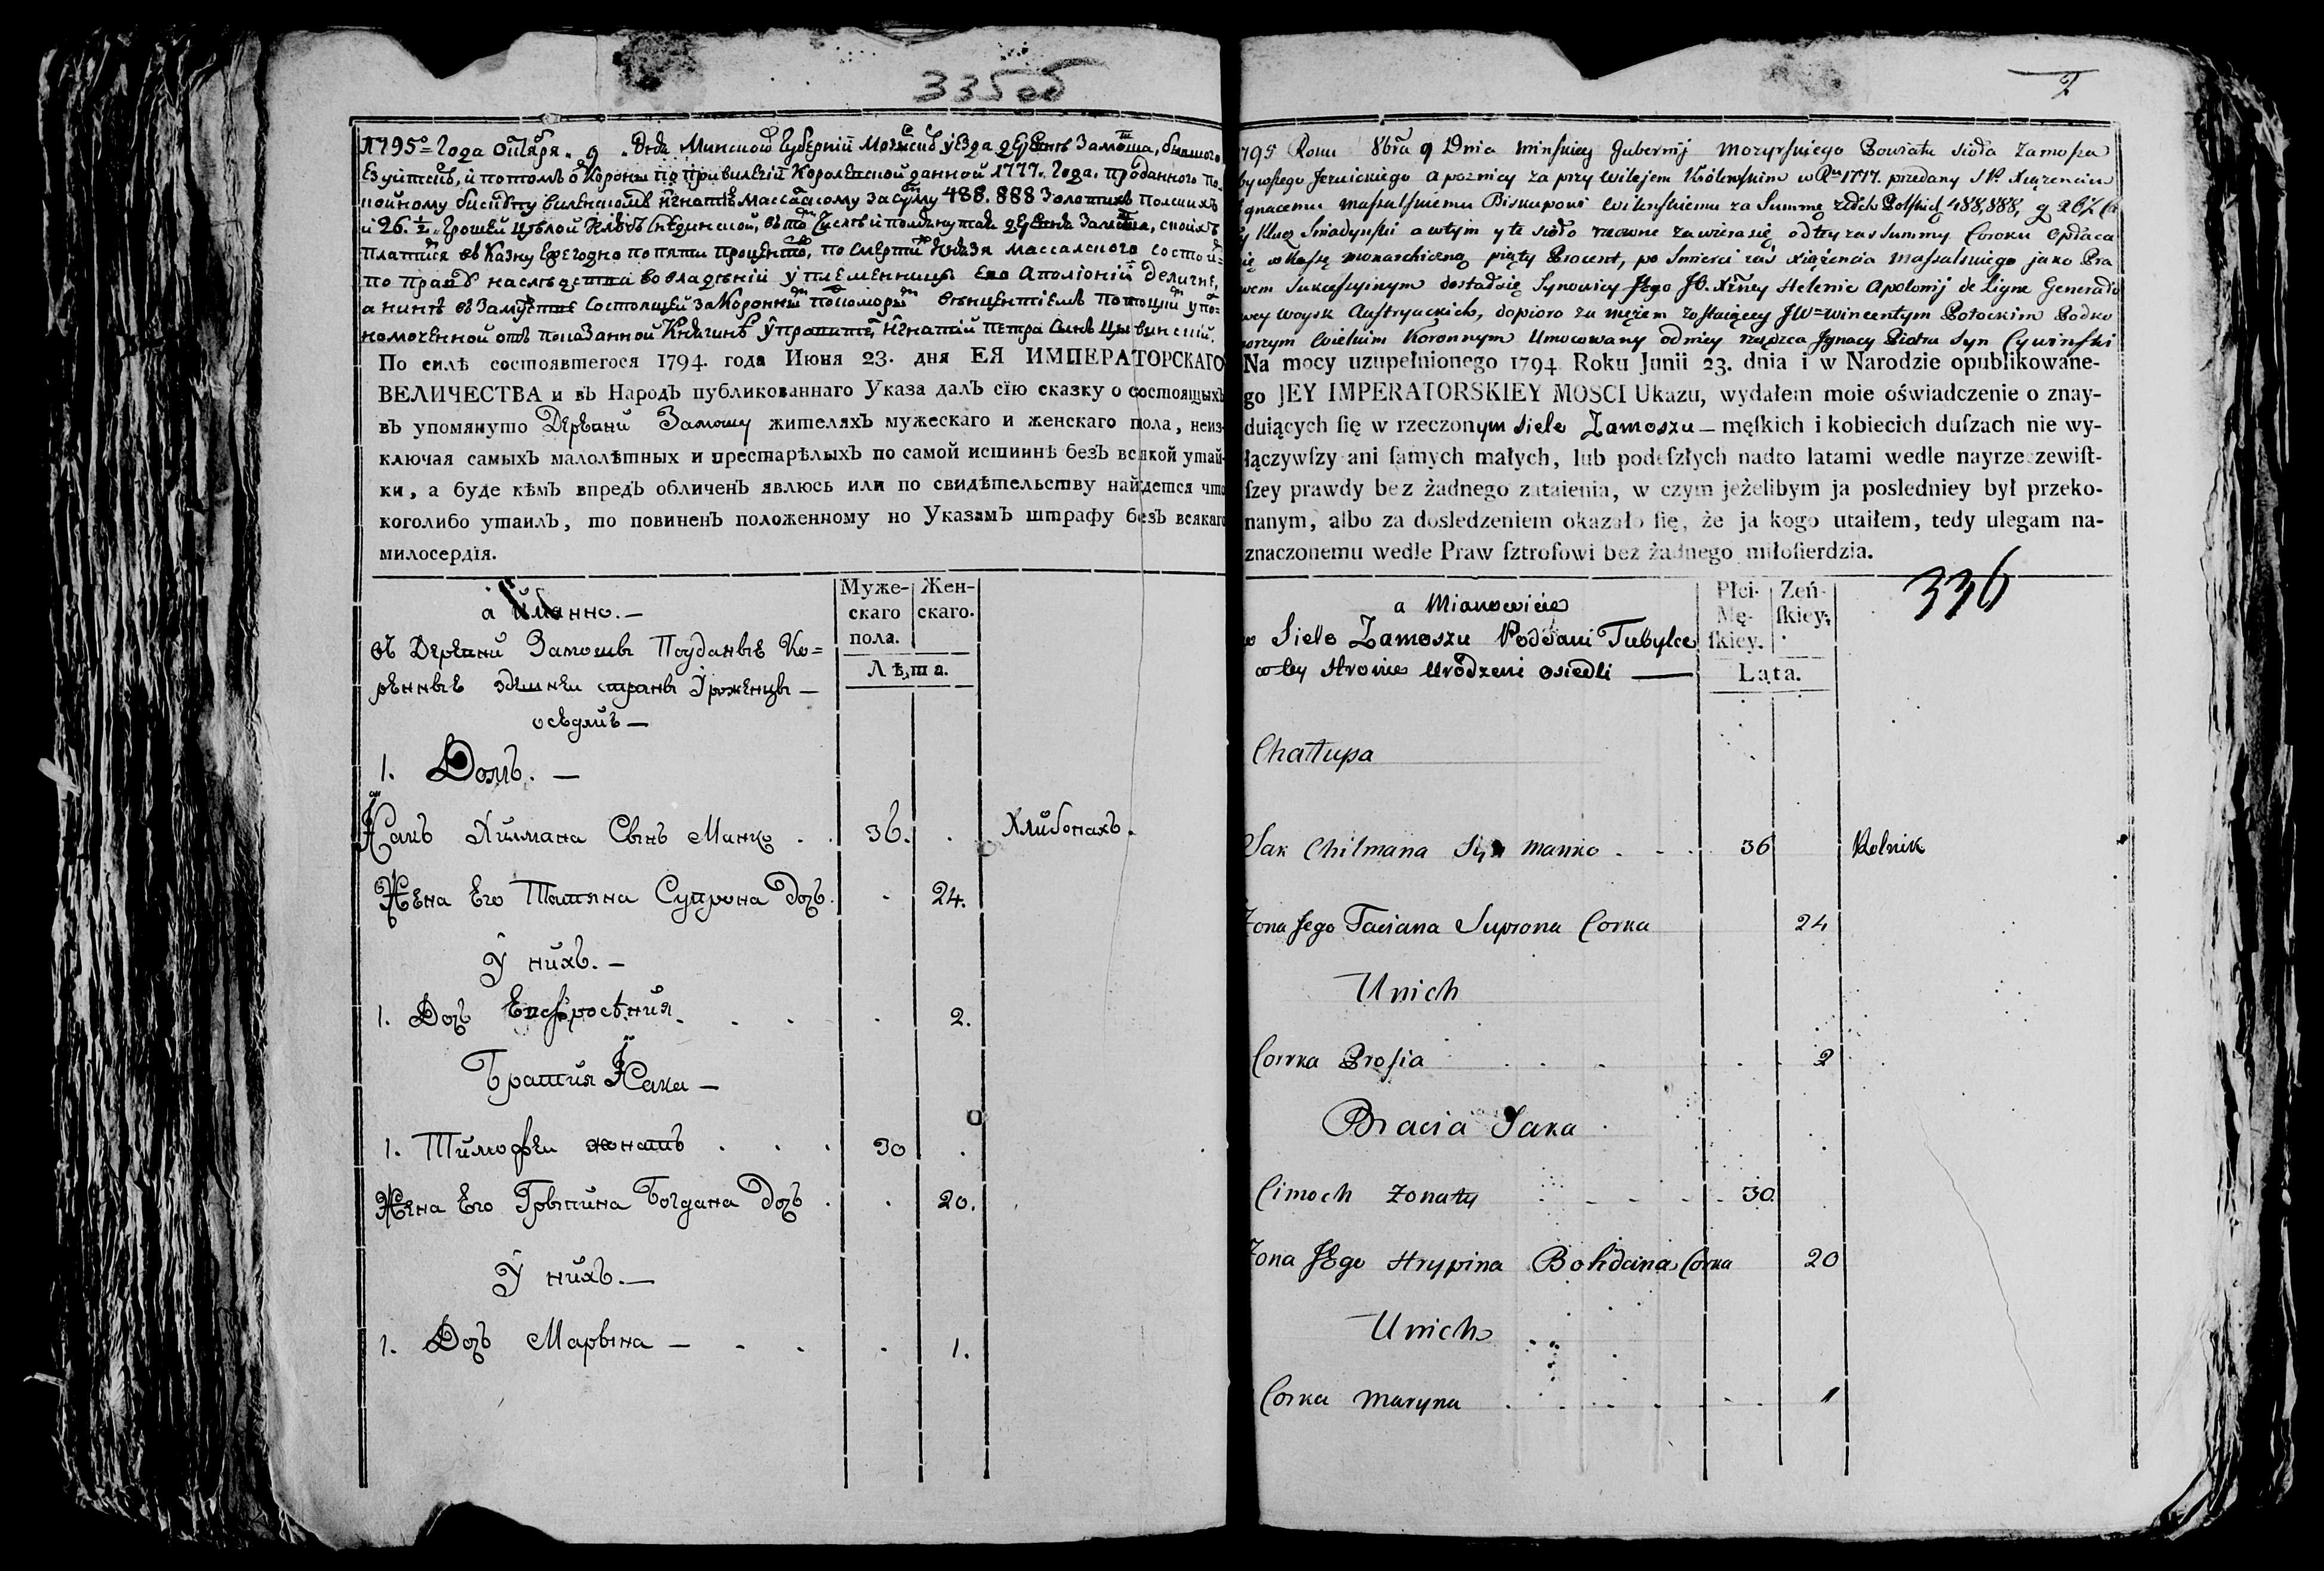 335об
1795го Года Октября 9 Дня Минской Губерний Мозырскаго уезда деревни Замоша, бывшого
Езуитскаго, и потомъ Короны по привилегій Королевской данной 1777. Года. проданного По-
койному Бискупу виленскому Массалскому за Сумму 488.888 Золотихъ Полскихъ
и 26. ½ Грошей
платится въ Казну Ежегодно по пяти процентовъ, по смерти Князя массалского состой-
по праву наследства во владеній у племенницы Его Аполіоній Делигне,
а нине въ Замустве Состоящей за Коронным Подкоморым Венцентіемъ Потоцкім упо-
номоченной отъ показанной Княгине Управитель Игнатій Петра Сынъ Цывинскій.
По силѣ состоявшегося 1794. года Июня 23. дня ЕЯ ИМПЕРАТОРСКАГО
ВЕЛИЧЕСТВА и въ Народъ публикованнаго Указа далъ сїю сказку о состоящыхъ
въ упомянуто Деревни Замошу жителяхъ мужескаго и женскаго пола, неиз-
ключая самыхъ малолѣтныхъ и престарѣлыхъ по самой истиннѣ безъ всякой утай-
ки, а буде кѣмъ впредъ обличенъ явлюсь или по свидѣтельству найдется что
коголибо утаилъ, то повиненъ положенному но Указамъ штрафу безъ всякаго
милосердїя.
а Имянно. —
Муже-
скаго
пола.
Жен-
скаго.
Лѣта.
въ Деревни Замошы Поуданые Ко=
ренные здешнеи страны Уроженцы —
оседлиѣ —
1. Домъ. —
Исакъ Хилмана Сынъ Манко . . 36. . Хлибопахъ.
Жена Его Татяна Супрона Дочъ. . 24.
У нихъ. —
1. Дочъ Евфросѣния . . . . 2.
Братия Исака —
1. Тимофеи женатъ . . . 30 .
Жена Его Грыпина Богдана Дочъ . . 20.
У нихъ. —
1. Дочъ Марына — . . . 1.
2
795 Roku 8bra 9 Dnia Minskiey Gubernij Mozyrskiego Powiatu sioła Zamosza
bywszego Jezuickiego a pozniey za przywilejem Królewskim w Rku 1777. przedany Xiązenciu
gnacemu Massalskiemu Biskupowi Wilenskiemu za Summę Polskich 488,888, g 26½
y Klucz Sniadynski a wtym y te sioło zawiera się, od tey zas Summy Coroku Opłaca
się w Kassę Monarchiczną piąty Procent, po Smierci zas Xiązencia Massalskiego jako Pra
wem Sukcessyinym dostało się Synowicy Jego JO. Xżney Helenie Apolonij de Ligne Generało
wey Woysk Austryackich, dopioro za męzem zostaiącey JW= Wincentym Potockim Podko
morzym Wielkim Koronnym Umocowany od niey rządca Jgnacy Piotra Syn Cywinski
Na mocy uzupełnionego 1794 Roku Junii 23. dnia i w Narodzie opublikowane-
go JEY IMPERATORSKIEY MOSCI Ukazu, wydałem moie oświadczenie o znay-
duiących ſię w rzeczonym siele Zamoszu — męſkich i kobiecich duſzach nie wy-
łączywſzy ani ſamych małych, lub podeſzłych nadto latami wedle nayrzeczewiſt-
ſzey prawdy bez żadnego zataienia, w czym jeżelibym ja posledniey był przeko-
nanym, albo za dosledzeniem okazało ſię, że ja kogo utaiłem, tedy ulegam na-
znaczonemu wedle Praw ſztrofowi bez żadnego miłoſierdzia.
336
a Mianowicie
Płci-
Mę-
ſkiey.
Zeń-
ſkiey.
Lata.
w Siele Zamoszu Poddani Tubylce
w tey stronie Urodzeni osiedli —
Chałupa
Sak Chilmana Syn Manko . . . 36 Rolnik
Zona Jego Taciana Suprona Corka 24
Unich
Corka Prosia . . . . . 2
Bracia Saka
Cimoch Zonaty . . . . 30
Zona JEgo Hrypina Bohdana Corka 20
Unich
Corka Maryna . . . . . 1